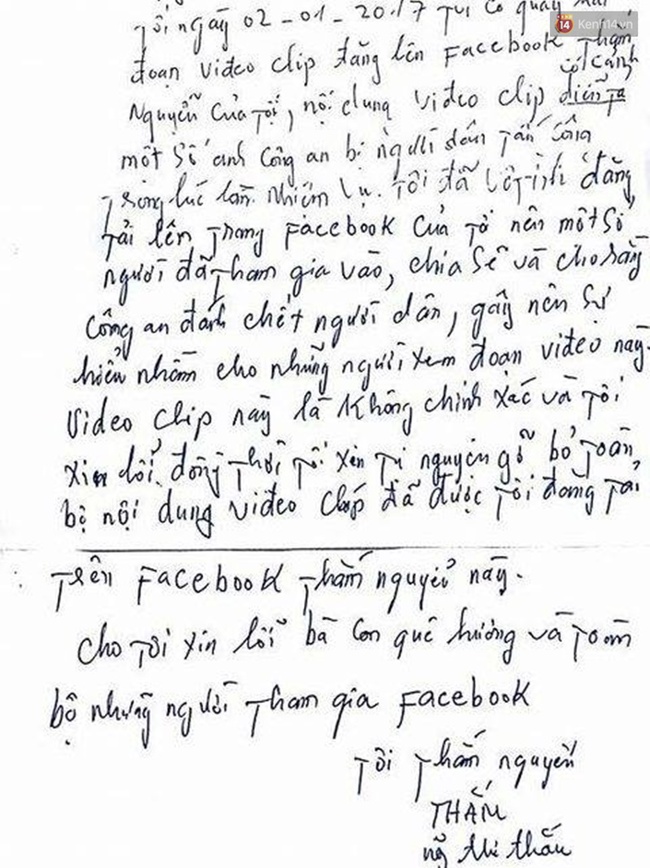 14 Kenh14.vn
Tối ngày 02-01-2017 tui có quay
đoạn video clip đăng lên Facebook Thắm
có cảnh
Nguyễn của tôi, nội dung video clip diễn ta
một số anh công an bị người dân tấn công
trong lúc làm nhiệm vụ. Tôi đã vô tình đăng
tải lên trang Facebook của tô nên một số
người đã tham gia vào, chia sẽ và cho rằng
công an đánh chết người dân, gây nên sự
hiểu nhầm cho những người xem đoạn video này.
video clip này là không chính xác và tôi
xin lỗi. đồng thời tôi xin tự nguyện gỡ bỏ toàn
bộ nội dung video clip đã được tôi đăng tải
trên Facebook Thắm nguyễn này.
cho tôi xin lỗi bà con quê hương và toàn
bộ những người tham gia Facebook
Tôi Thắm nguyễn
THẮM
ng thi thắm